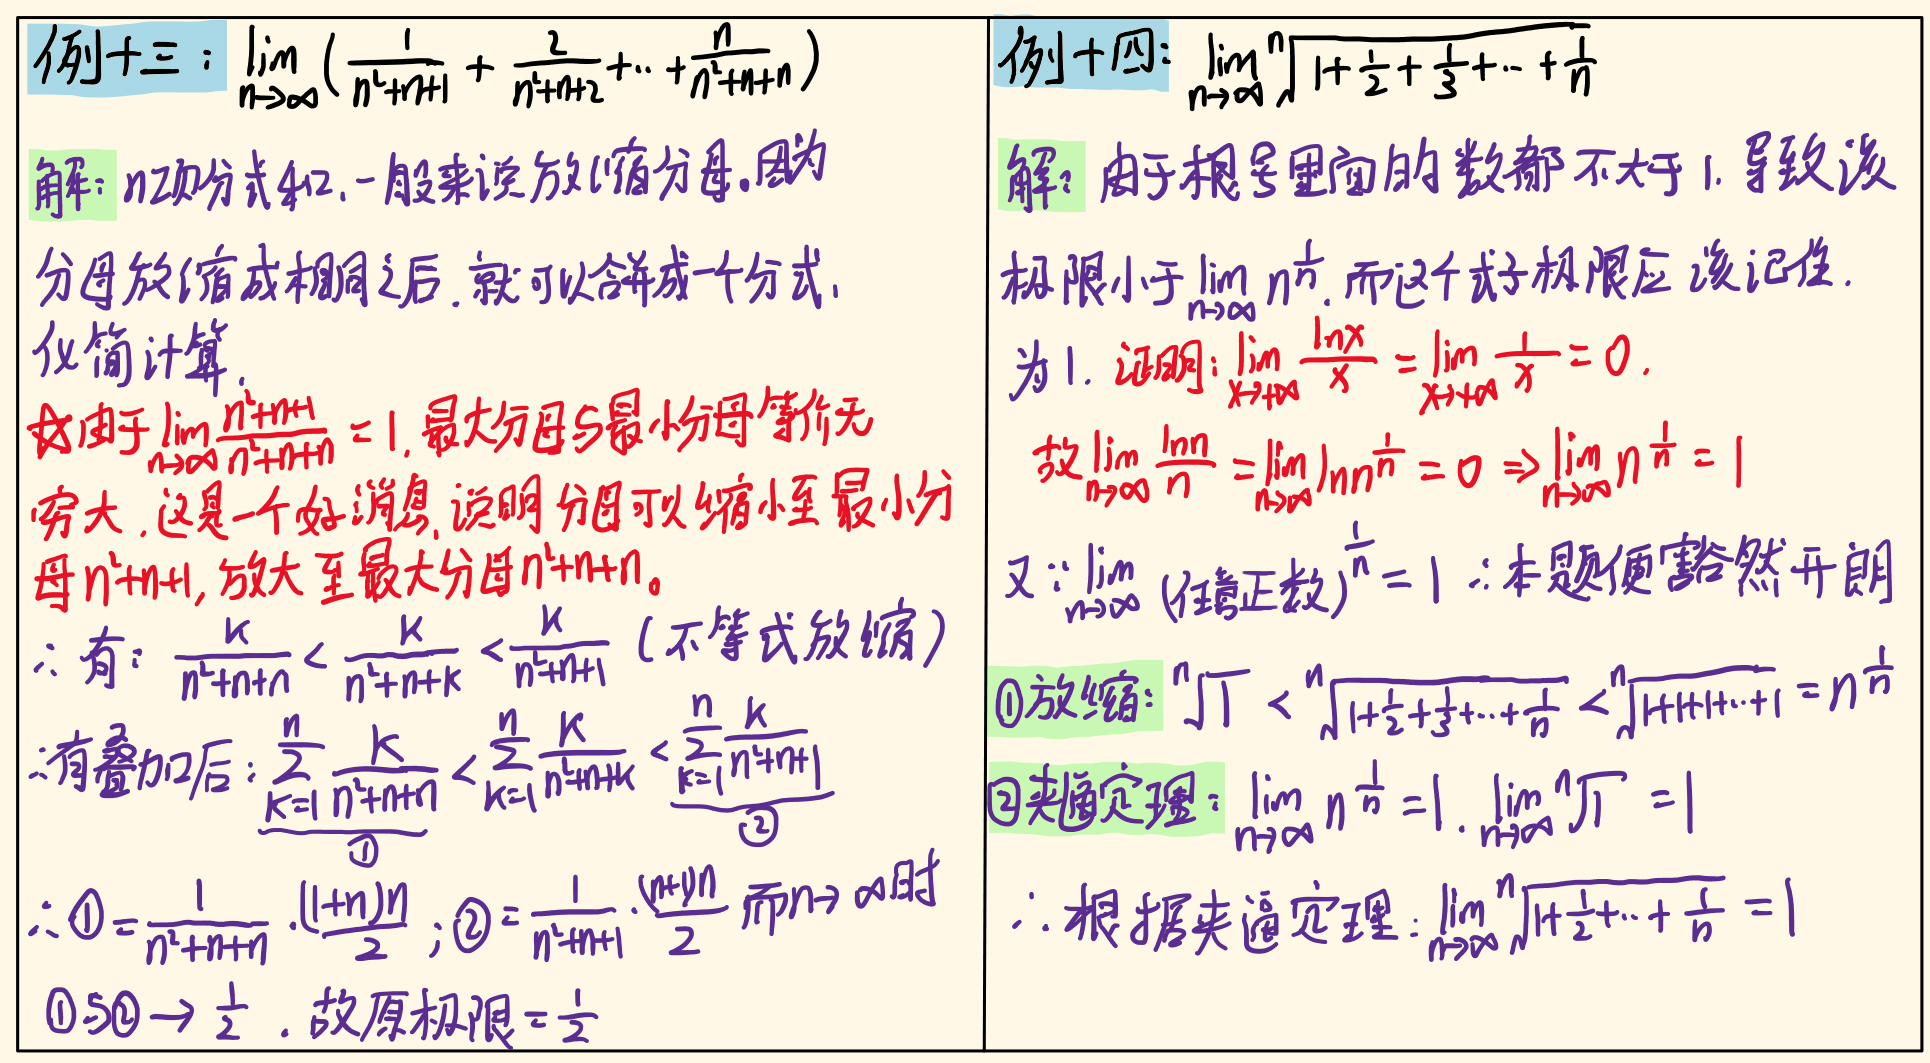 例十三: lim n→∞ (1/(n²+n+1) + 2/(n²+n+2) +…+ n/(n²+n+n))
解: n项分式和,一般来说放缩分母。因为
分母放缩成相同之后.就可以合并成一个分式,
化简计算.
故由于 lim n→∞ (n²+n+1)/(n²+n+n) = 1,最大分母与最小分母等价无
穷大.这是一个好消息,说明分母可以缩小至最小分
母n²+n+1,放大至最大分母n²+n+n。
∴有: k/(n²+n+n) < k/(n²+n+k) < k/(n²+n+1) (不等式放缩)
∴有叠加后: ∑ k=1 n k/(n²+n+n) < ∑ k=1 n k/(n²+n+k) < ∑ k=1 n k/(n²+n+1)
① ②
∴①= 1/(n²+n+n) · (1+n)n/2 ; ②= 1/(n²+n+1) · (n+1)n/2 而n→∞时
①与②→ 1/2 . 故原极限= 1/2
例十四: lim n→∞ ⁿ√(1+1/2+1/3+…+1/n)
解: 由于根号里面的数都不大于1.导致该
极限小于 lim n→∞ n^(1/n). 而这个式子极限应该记住.
为1. 证明: lim x→+∞ lnx/x = lim x→+∞ 1/x = 0.
故 lim n→∞ lnn/n = lim n→∞ lnn^(1/n) = 0 ⇒ lim n→∞ n^(1/n) = 1
又∵ lim n→∞ (任意正数)^(1/n) = 1 ∴本题便豁然开朗
①放缩: ⁿ√1 < ⁿ√(1+1/2+1/3+…+1/n) < ⁿ√(1+1+1+…+1) = n^(1/n)
②夹逼定理: lim n→∞ n^(1/n) = 1. lim n→∞ ⁿ√1 = 1
∴根据夹逼定理: lim n→∞ ⁿ√(1+1/2+…+1/n) = 1